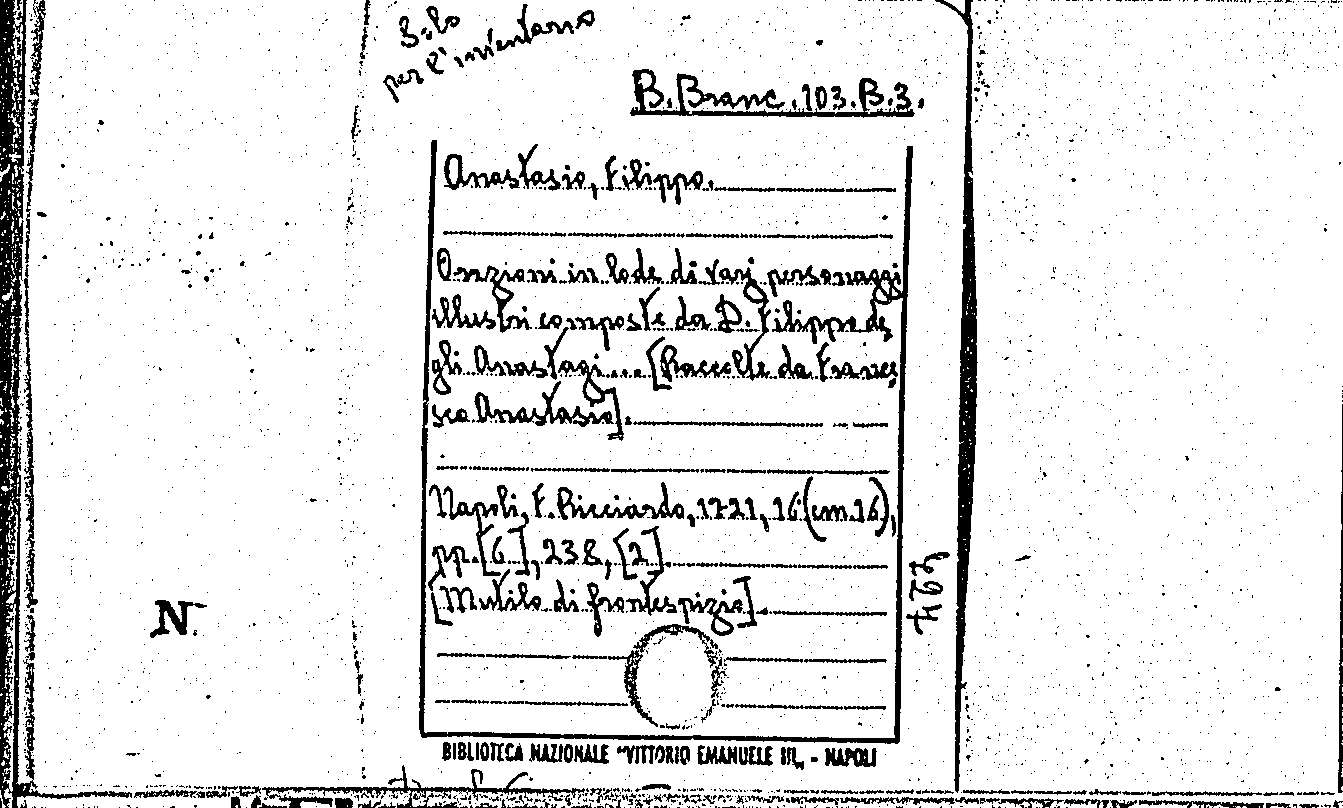 Solo
per l'inventario
B. Branc. 103. B. 3.
Anastasio, Filippo.
Orazioni in lode di varj personaggi
illustri composte da D. Filippo de,
gli Anastagi... [Raccolte da France,
sco Anastasio].
Napoli, F. Ricciardo, 1721, 16 (cm. 16),
pp. [6], 238, [2].
[Mutilo di frontespizio].
N.
BIBLIOTECA NAZIONALE "VITTORIO EMANUELE III„ - NAPOLI